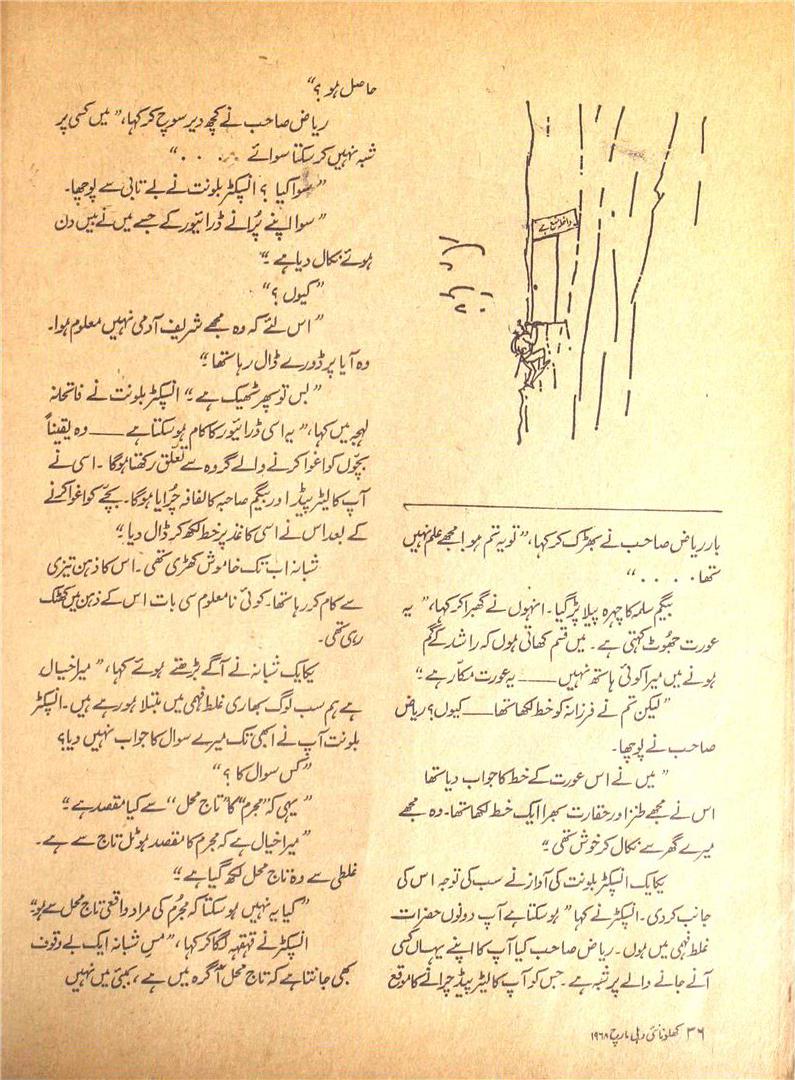 داخلہ منع ہے
بار ریاض صاحب نے بھڑک کر کہا، ”تو یہ تم ہو! مجھے علم نہیں
تھا. . . . “
بیگم سلمہ کا چہرہ پیلا پڑ گیا۔ انہوں نے گھبرا کر کہا، ” یہ
عورت جھوٹ کہتی ہے۔ میں قسم کھاتی ہوں کہ راشد کے گم
ہونے میں میرا کوئی ہاتھ نہیں —— یہ عورت مکّار ہے۔“
”لیکن تم نے فرزانہ کو خط لکھا تھا —— کیوں؟ ریاض
صاحب نے پوچھا۔
” میں نے اس عورت کے خط کا جواب دیا تھا
اس نے مجھے طنز اور حقارت بھرا ایک خط لکھا تھا۔ وہ مجھے
میرے گھر سے نکال کر خوش تھی۔“
یکایک انسپکٹر بلونت کی آواز نے سب کی توجہ اس کی
جانب کر دی۔ انسپکٹر نے کہا ” ہو سکتا ہے آپ دونوں حضرات
غلط فہمی میں ہوں۔ ریاض صاحب کیا آپ کا اپنے یہاں کسی
آنے جانے والے پر شبہ ہے۔ جس کو آپ کا لیٹر پیڈ چرانے کا موقع
حاصل ہو؟“
ریاض صاحب نے کچھ دیر سوچ کر کہا، ” میں کسی پر
شبہ نہیں کر سکتا سوائے . . . . “
”سوا کیا؟ انسپکٹر بلونت نے بے تابی سے پوچھا۔
” سوا اپنے پُرانے ڈرائیور کے جسے میں نے بیس دن
ہوئے نکال دیا ہے۔“
”کیوں؟“
” اس لئے کہ وہ مجھے شریف آدمی نہیں معلوم ہوا۔
وہ آیا پر ڈورے ڈال رہا تھا۔“
” بس تو پھر ٹھیک ہے۔“ انسپکٹر بلونت نے فاتحانہ
لہجہ میں کہا، ” یہ اسی ڈرائیور کا کام ہو سکتا ہے —— وہ یقیناً
بچّوں کو اغوا کرنے والے گروہ سے تعلّق رکھتا ہوگا۔ اسی نے
آپ کا لیٹر پیڈ اور بیگم صاحبہ کا لفافہ چُرایا ہوگا۔ بچّے کو اغوا کرنے
کے بعد اس نے اسی کاغذ پر خط لکھ کر ڈال دیا۔“
شبانہ اب تک خاموش کھڑی تھی۔ اس کا ذہن تیزی
سے کام کر رہا تھا۔ کوئی نامعلوم سی بات اس کے ذہن میں کھٹک
رہی تھی۔
یکایک شبانہ نے آگے بڑھتے ہوئے کہا، ” میرا خیال
ہے ہم سب لوگ بھاری غلط فہمی میں مبتلا ہو رہے ہیں۔ انسپکٹر
بلونت آپ نے ابھی تک میرے سوال کا جواب نہیں دیا؟
”کس سوال کا؟“
” یہی کہ ”مجرم“ کا ”تاج محل“ سے کیا مقصد ہے۔“
” میرا خیال ہے کہ مجرم کا مقصد ہوٹل تاج سے ہے۔
غلطی سے وہ تاج محل لکھ گیا ہے۔“
”کیا یہ نہیں ہو سکتا کہ مجُرم کی مراد واقعی تاج محل سے ہو“
انسپکٹر نے قہقہہ لگا کر کہا، ” مس شبانہ ایک بے وقوف
بھی جانتا ہے کہ تاج محل آگرہ میں ہے، بمبئی میں نہیں
۳۶ کھلونا نئی دہلی مارچ ۱۹۶۸